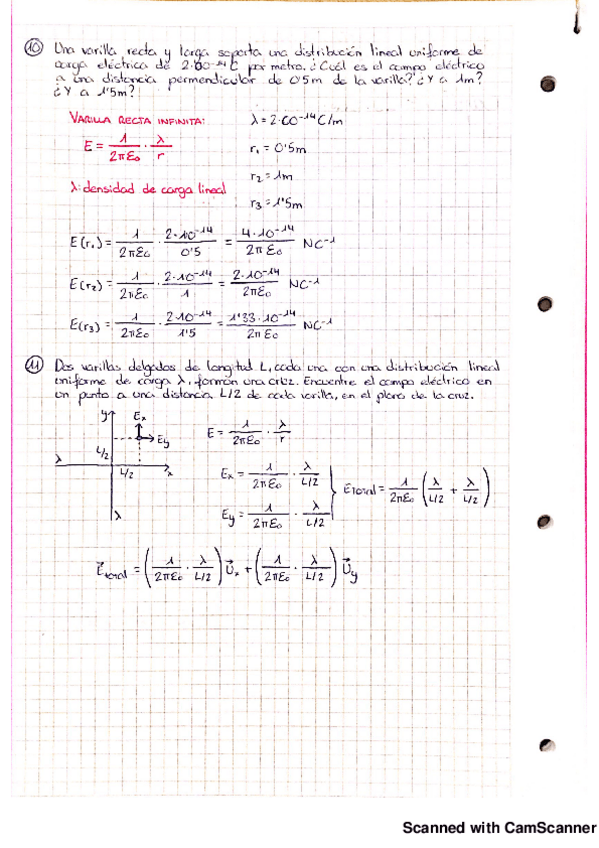 10 Una varilla recta y larga soporta una distribución lineal uniforme de
carga eléctrica de 2·00⁻¹⁴ C por metro. ¿Cuál es el campo eléctrico
a una distancia permendicular de 0'5m de la varilla? ¿Y a 1m?
¿Y a 1'5m?
VARILLA RECTA INFINITA:
λ = 2·CO⁻¹⁴ C/m
E = 1/2πε₀ · λ/r
r₁ = 0'5m
r₂ = 1m
λ: densidad de carga lineal
r₃ = 1'5m
E(r₁) = 1/2πε₀ · 2·10⁻¹⁴/0'5 = 4·10⁻¹⁴/2πε₀ NC⁻¹
E(r₂) = 1/2πε₀ · 2·10⁻¹⁴/1 = 2·10⁻¹⁴/2πε₀ NC⁻¹
E(r₃) = 1/2πε₀ · 2·10⁻¹⁴/1'5 = 1'33·10⁻¹⁴/2πε₀ NC⁻¹
11 Dos varillas delgadas de longitud L, cada una con una distribución lineal
uniforme de carga λ, forman una cruz. Encuentre el campo eléctrico en
un punto a una distancia L/2 de cada varilla, en el plano de la cruz.
y
Ex
Ey
L/2
L/2
λ
x
λ
E = 1/2πε₀ · λ/r
Ex = 1/2πε₀ · λ/L/2
Ey = 1/2πε₀ · λ/L/2
Etotal = 1/2πε₀ (λ/L/2 + λ/L/2)
E⃗total = (1/2πε₀ · λ/L/2) U⃗x + (1/2πε₀ · λ/L/2) U⃗y
Scanned with CamScanner